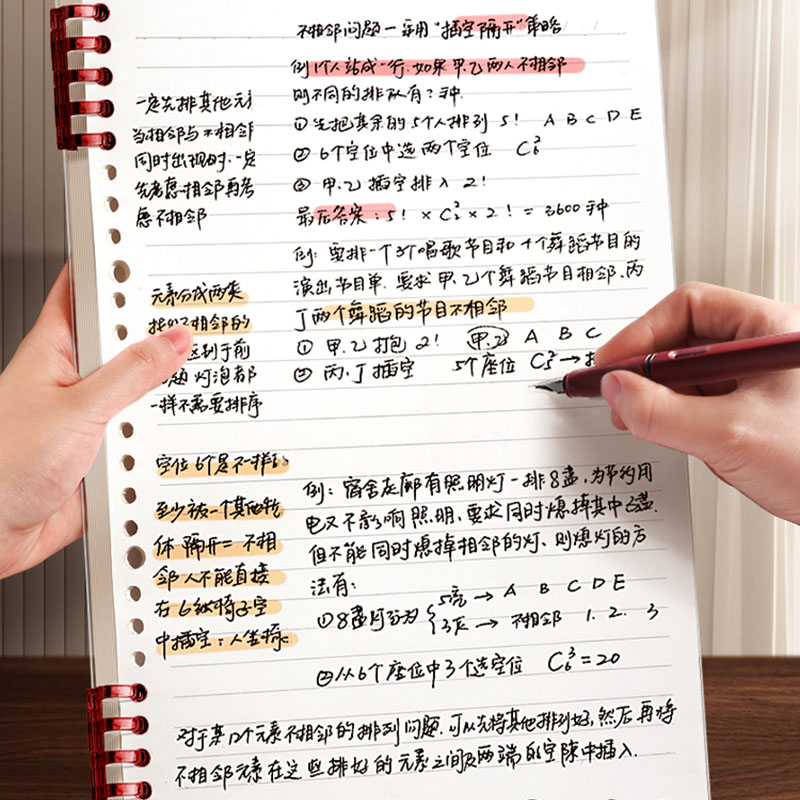 不相邻问题一采用"插空隔开"策略
例1个人站成一行.如果甲.乙两人不相邻
则不同的排队有?种.
①先把其余的5个人排列 5! A B C D E
②6个空位中选两个空位 C₆²
③甲.乙插空排入 2!
最后答案:5! × C₆² × 2! = 3600种
例:要排一个3个唱歌节目和4个舞蹈节目的
演出节目单.要求甲.乙2个舞蹈节目相邻.丙
丁两个舞蹈的节目不相邻
①甲.乙打包 2! 甲.乙 A B C
②丙.丁插空 5个座位 C₅² →
一定先排其他元
当相邻与不相邻
同时出现时.一定
先考虑相邻再考
虑不相邻
元素分成两类
不相邻的
区别于前
题灯泡都
一样不需要排序
空位6个是不一样
至少被一个其他物
体隔开=不相
邻人不能直接
在6纵椅子空
中插空:人坐椅
例:宿舍走廊有照明灯一排8盏.为节约用
电又不影响照明.要求同时熄掉其中3盏.
但不能同时熄掉相邻的灯、则熄灯的方
法有:
①8盏灯分为 { 5亮 → A B C D E
3灭 → 不相邻 1. 2. 3
②从6个座位中3个选空位 C₆³=20
对于某几个元素不相邻的排列问题.可以先将其他排列好,然后再将
不相邻元素在这些排好的元素之间及两端的空隙中插入.